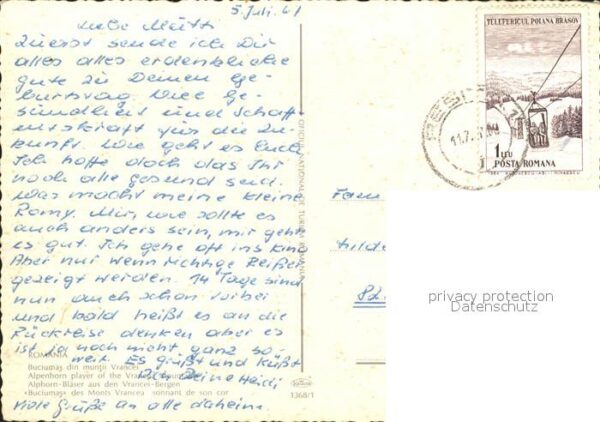 5. Juli. 61
Liebe Mutti
Zuerst sende ich Dir
alles alles erdenkliche
gute zu Deinen Ge-
burtstag. Viel Ge-
sundheit und Schaff-
enskraft für die Zu-
kunft. Wie geht es Euch
Ich hoffe doch das Ihr
noch alle gesund seid.
Was macht meine kleine
Romy. Mir, wie sollte es
auch anders sein, mir geht
es gut. Ich gehe oft ins Kino
Aber nur wenn richtige Reißer
gezeigt werden. 14 Tage sind
nun auch schon vorbei
und bald heißt es an die
Rückreise denken aber es
ist ja noch nicht ganz so-
weit. Es grüßt und küßt
Dich Deine Heidi
viele Grüße an alle daheim.
ROMANIA
Buciumaș din munții Vrancei
Alpenhorn player of the Vrancea
Alphorn-Bläser aus den Vrancer-Bergen
«Buciumaș» des Monts Vrancea sonnant de son cor
1368/1
OFICIUL NAȚIONAL DE TURISM ROMÂNIA
TELEFERICUL POIANA BRASOV
1 LEU
POSTA ROMANA
11.7.
Fam
privacy protection
Datenschutz